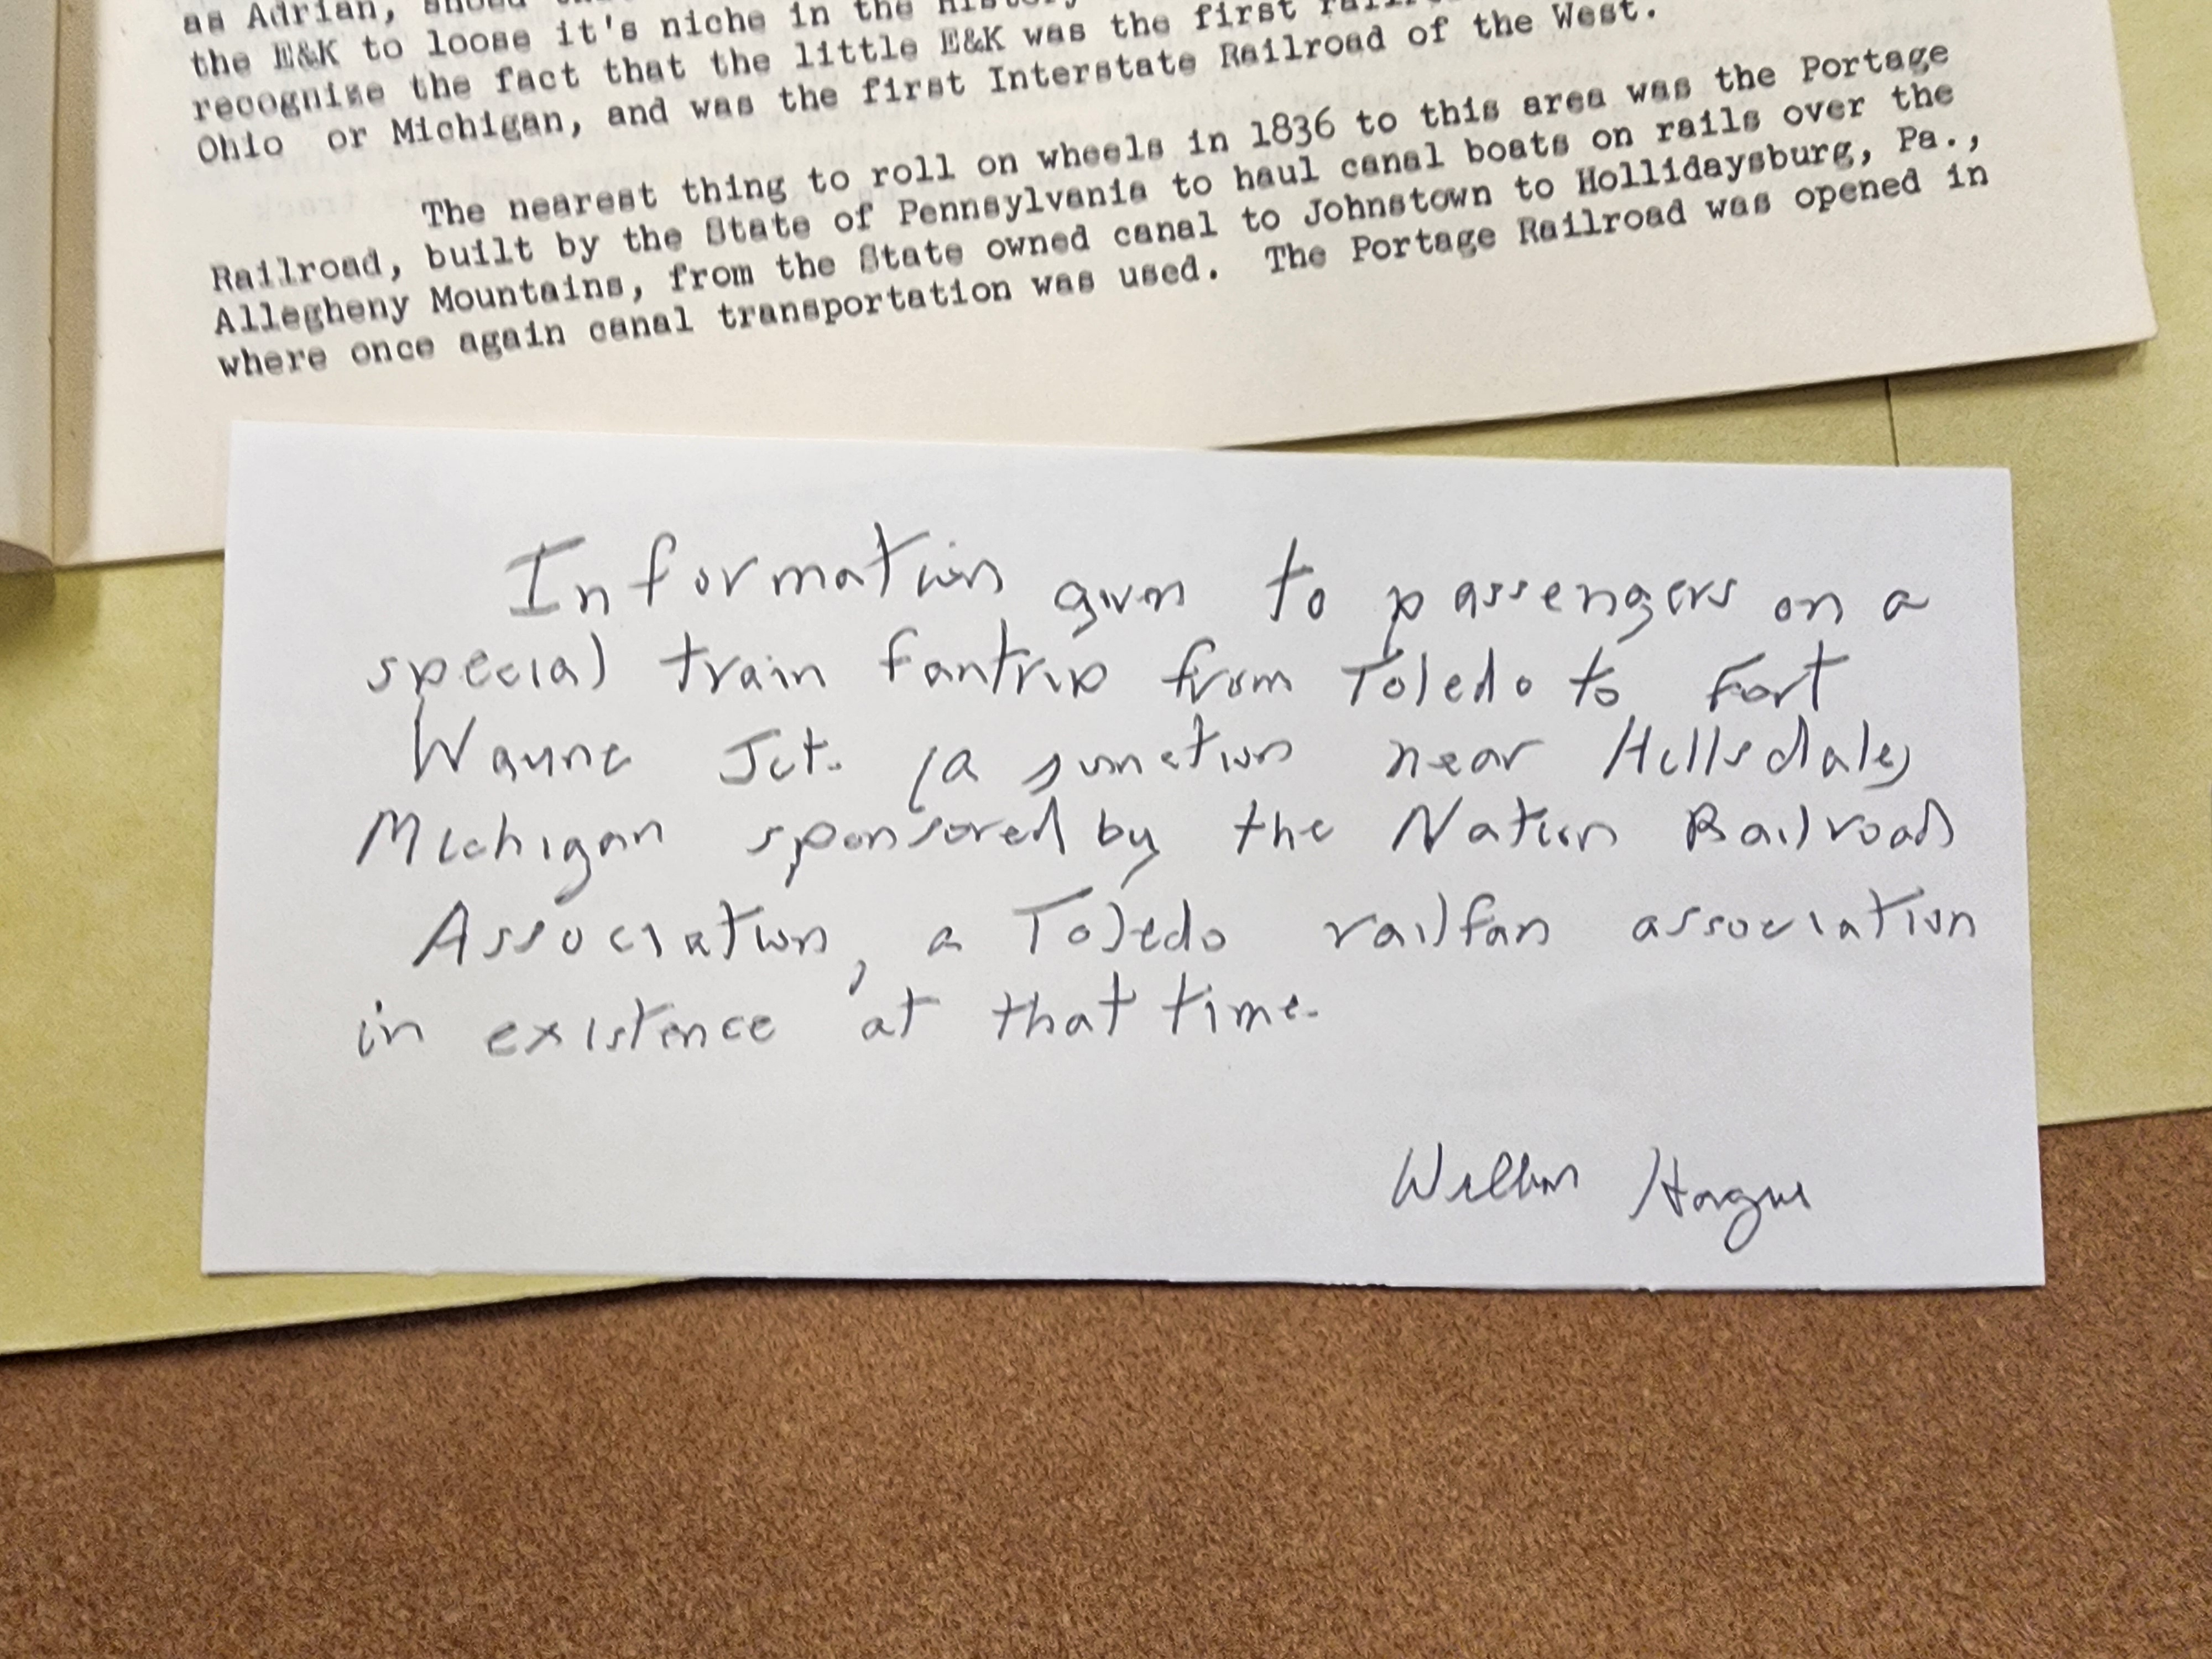 as Adrian,
the E&K to loose it's niche in the
recognize the fact that the little E&K was the first
Ohio or Michigan, and was the first Interstate Railroad of the West.
The nearest thing to roll on wheels in 1836 to this area was the Portage
Railroad, built by the State of Pennsylvania to haul canal boats on rails over the
Allegheny Mountains, from the State owned canal to Johnstown to Hollidaysburg, Pa.,
where once again canal transportation was used. The Portage Railroad was opened in
Information given to passengers on a
special train fantrip from Toledo to Fort
Wayne Jct. (a junction near Hillsdale,
Michigan sponsored by the Nation Railroad
Association, a Toledo railfan association
in existence at that time.
William Hague